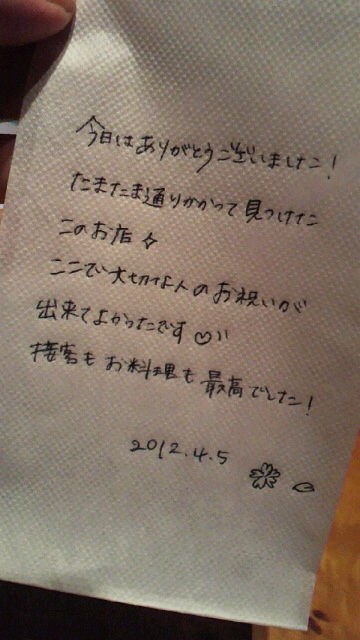 今日はありがとうございました！
たまたま通りかかって見つけた
このお店☆
ここで大切な人のお祝いが
出来てよかったです♡))
接客もお料理も最高でした！
2012.4.5